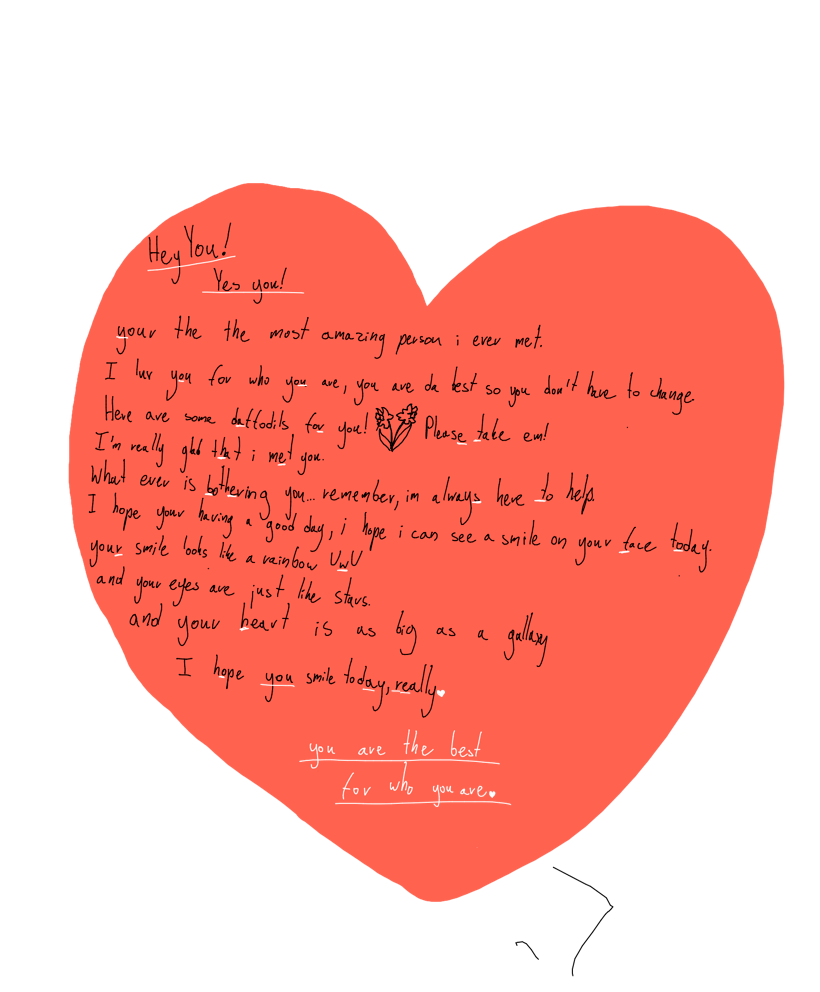 Hey You!
Yes you!
your the the most amazing person i ever met.
I luv you for who you are, you are da best so you don't have to change.
Here are some daffodils for you! Please take em!
I'm really glad that i met you.
What ever is bothering you... remember, im always here to help.
I hope your having a good day, i hope i can see a smile on your face today.
your smile looks like a rainbow UwU
and your eyes are just like stars.
and your heart is as big as a gallaxy
I hope you smile today, really♥
you are the best
for who you are♥